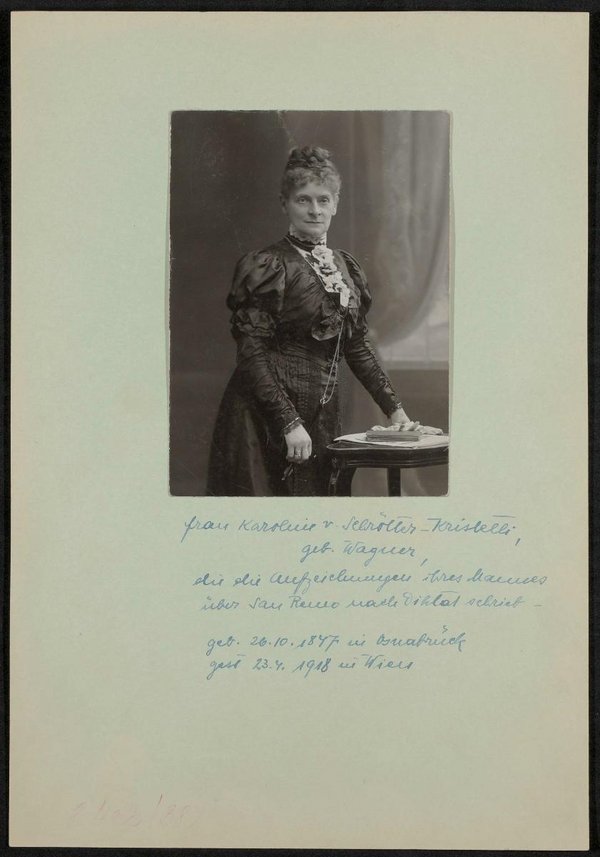 Frau Karoline v Schrötter-Kristelli,
geb. Wagner,
die die Aufzeichnungen ihres Mannes
über San Remo nach Diktat schrieb –
geb. 26.10.1847 in Osnabrück
gest 23.4. 1918 in Wien